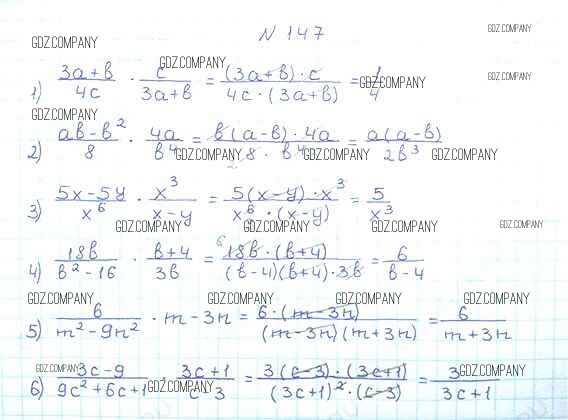 N 147
GDZ.COMPANY
GDZ.COMPANY
GDZ.COMPANY
1) (3a+b)/(4c) · c/(3a+b) = ((3a+b)·c)/(4c·(3a+b)) = 1/4
GDZ.COMPANY
GDZ.COMPANY
GDZ.COMPANY
2) (ab-b²)/8 · (4a)/(b⁴) = (b(a-b)·4a)/(8·b⁴) = (a(a-b))/(2b³)
GDZ.COMPANY GDZ.COMPANY GDZ.COMPANY
3) (5x-5y)/(x⁶) · (x³)/(x-y) = (5(x-y)·x³)/(x⁶·(x-y)) = 5/(x³)
GDZ.COMPANY GDZ.COMPANY GDZ.COMPANY GDZ.COMPANY
4) (18b)/(b²-16) · (b+4)/(3b) = (6 18b·(b+4))/((b-4)(b+4)·3b) = 6/(b-4)
GDZ.COMPANY GDZ.COMPANY GDZ.COMPANY GDZ.COMPANY
5) 6/(m²-9n²) · m-3n = (6·(m-3n))/((m-3n)(m+3n)) = 6/(m+3n)
GDZ.COMPANY GDZ.COMPANY
6) (3c-9)/(9c²+6c+1) · (3c+1)/(c-3) = (3(c-3)·(3c+1))/((3c+1)²·(c-3)) = 3/(3c+1)
GDZ.COMPANY